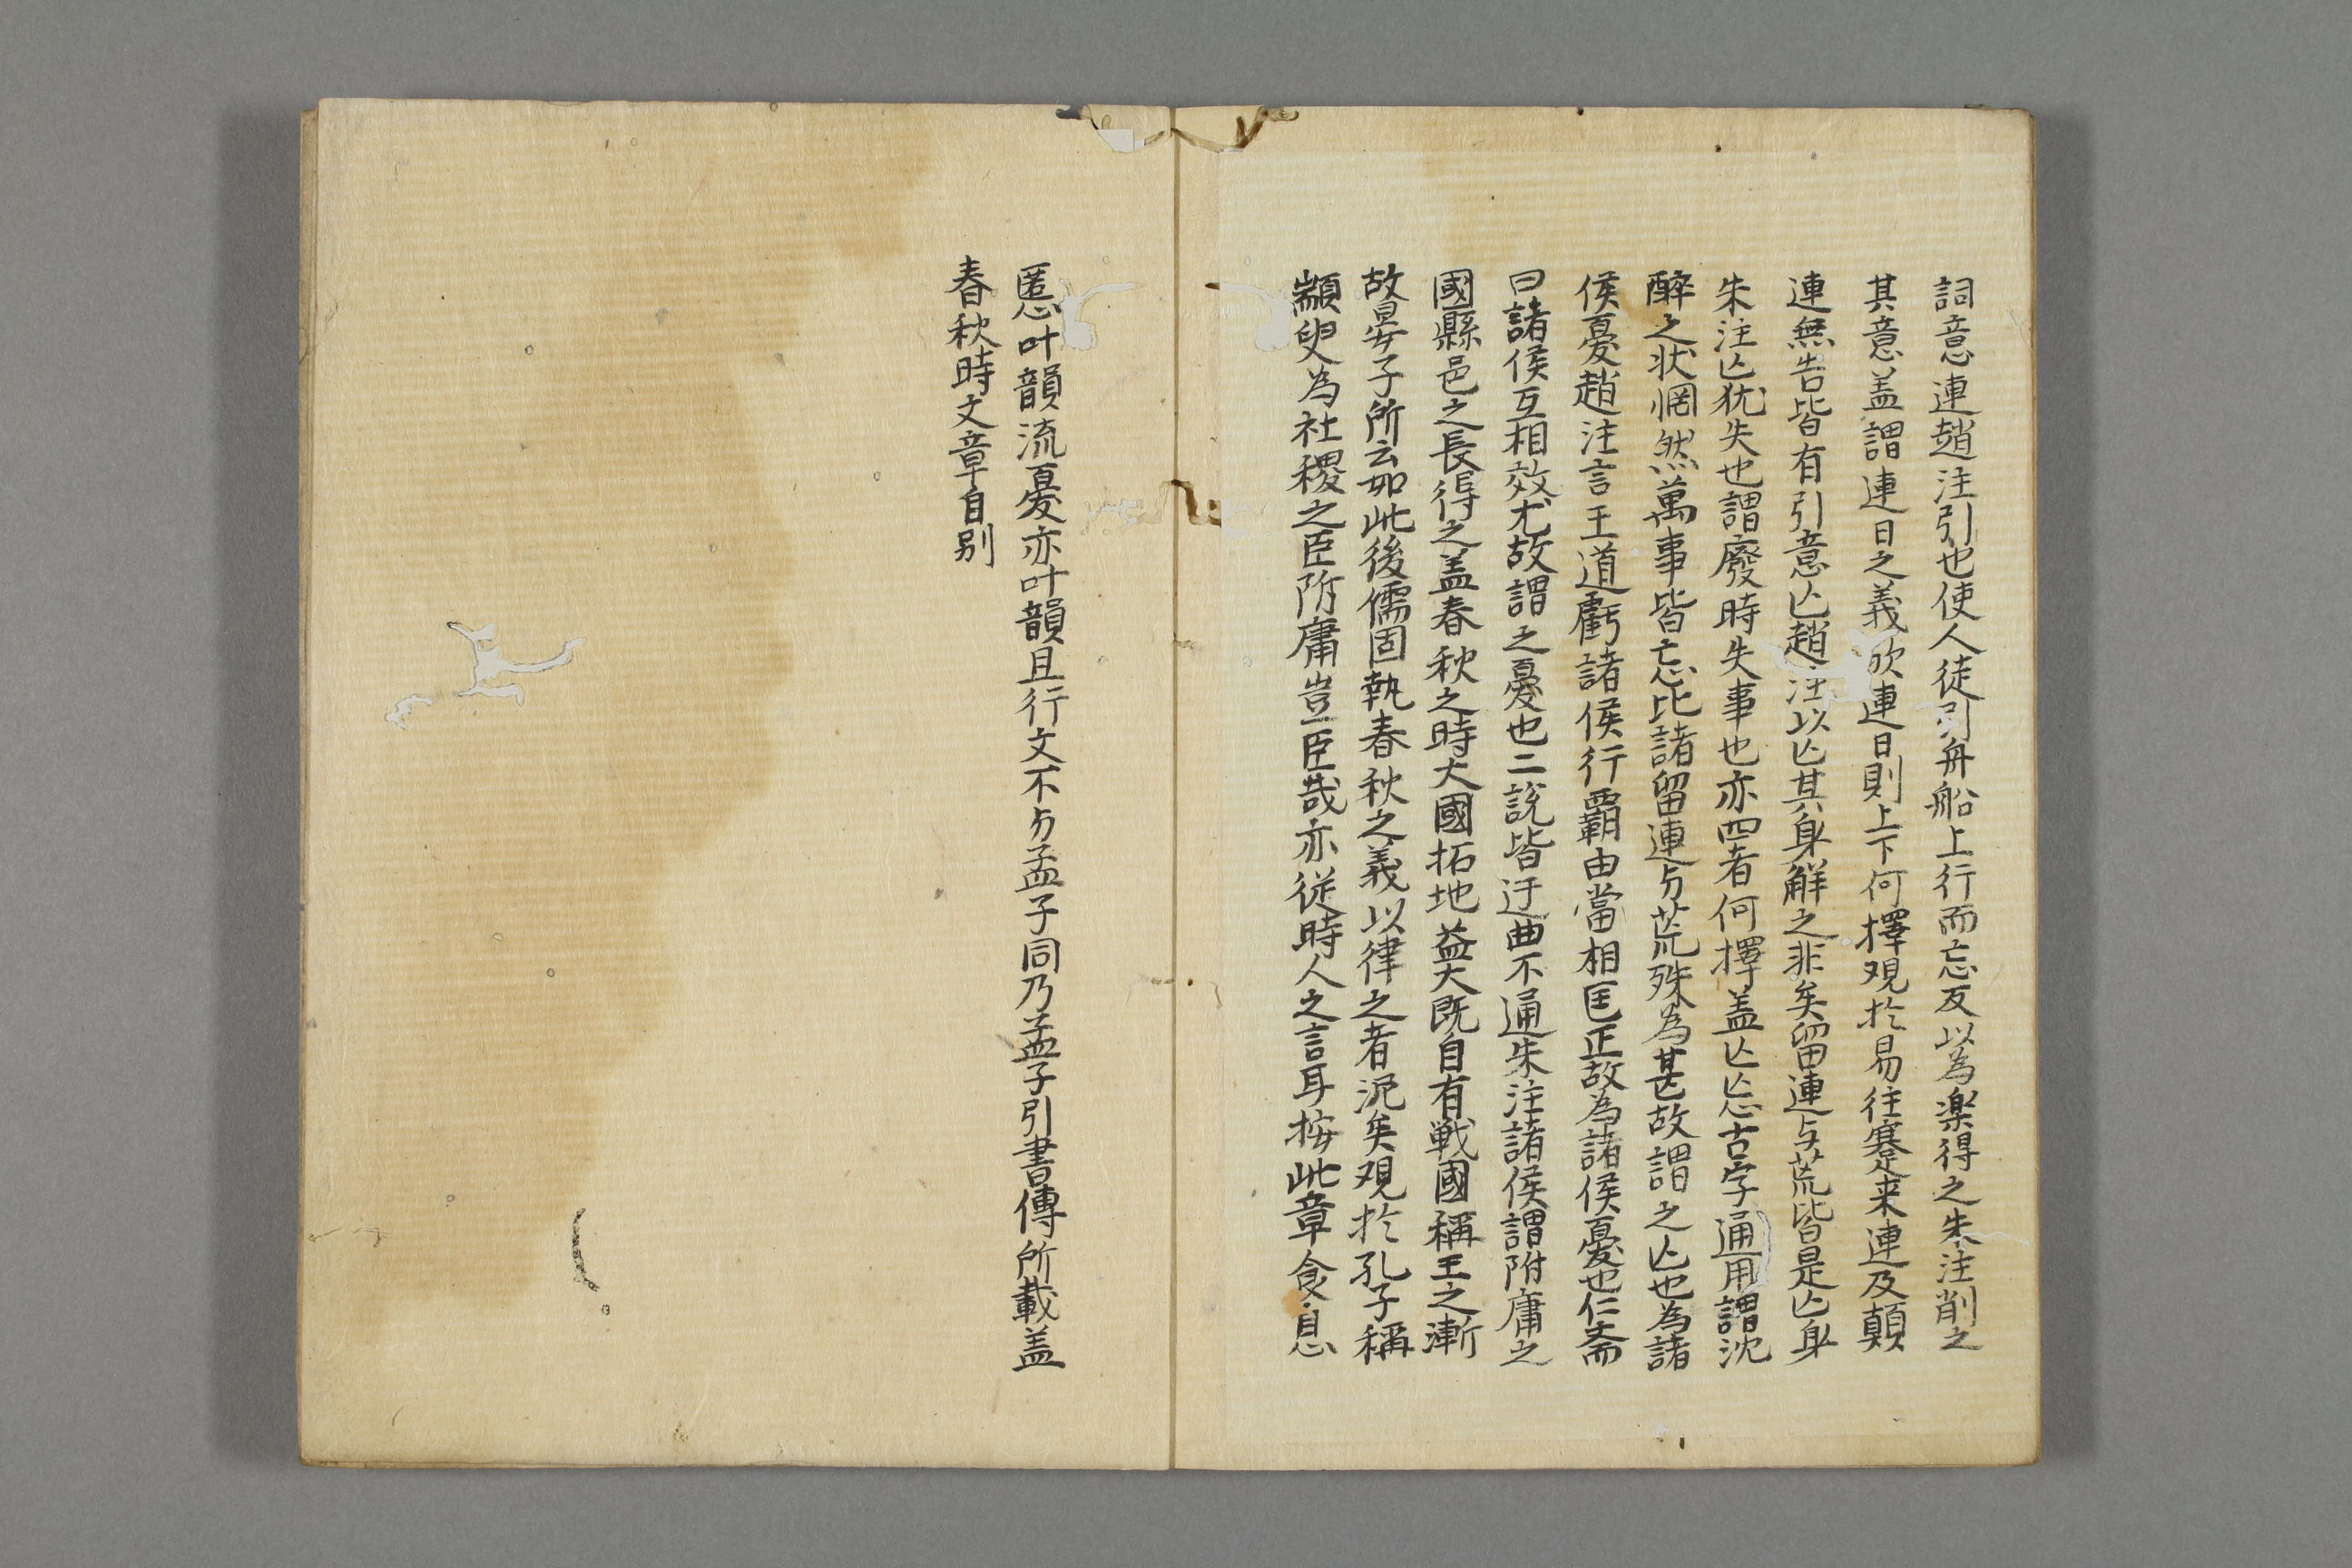 詞意連趙注引也使人徒引舟船上行而忘反以為楽得之朱注削之
其意盖謂連日之義欤連日則上下何擇观於易往蹇来連及顛
連無告皆有引意亾趙注以亾其身解之非矣留連与荒皆是亾身
朱注亾犹失也謂廢時失事也亦四者何擇盖亾忘古字通用謂沈
醉之状惘然萬事皆忘比諸留連与荒殊為甚故謂之亾也為諸
侯憂趙注言王道虧諸侯行覇由當相匡正故為諸侯憂也仁斎
曰諸侯互相效尤故謂之憂也二説皆迂曲不通朱注諸侯謂附庸之
國縣邑之長得之盖春秋之時大國拓地益大既自有戦國稱王之漸
故晏子所云如此後儒固執春秋之義以律之者泥矣观於孔子稱
顓臾為社稷之臣附庸豈臣哉亦従時人之言耳按此章食息
慝叶韻流憂亦叶韻且行文不与孟子同乃孟子引書傳所載盖
春秋時文章自别